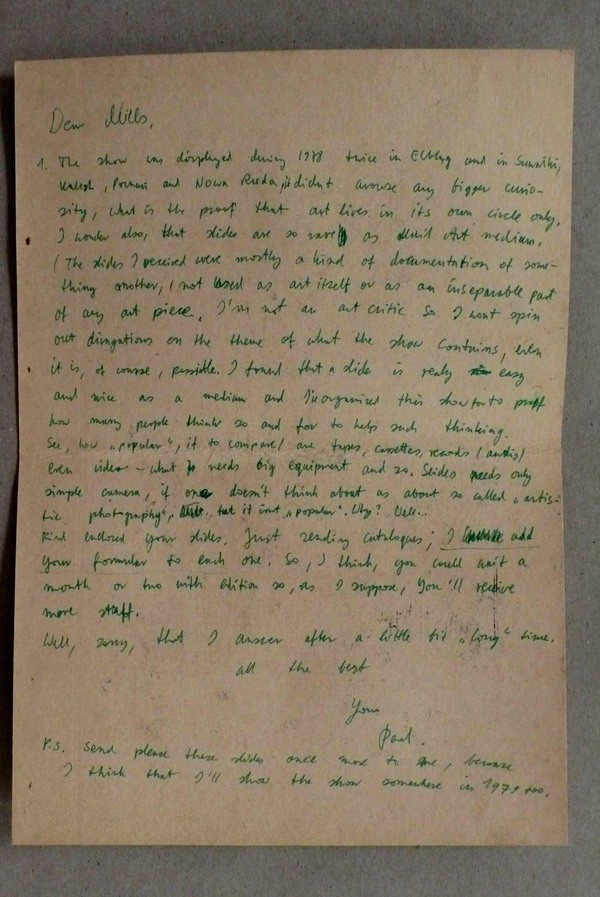 Dear Mills,
1. The show was displayed during 1978 twice in Elbląg and in Suwałki,
Poznań and Nowa Ruda, it didn't arouse any bigger curio-
sity, what is the proof that art lives in its own circle only.
I wonder also, that slides are so rare as art medium.
(The slides I received were mostly a kind of documentation of some-
thing another, (not used as art itself or as an inseparable part
of any art piece. I'm not an art critic so I wont spin
out on the theme of what the show contains, even
it is, of course, possible. I found that a slide is realy easy
and nice as a medium and I've organised this show for to proff
how many people think so and for to help such thinking.
See, how „popular", if to compare/ are, tapes, cassettes, records (audio)
even video - what needs big equipment and so. Slides needs only
simple camera, if one doesn't think about as about so called „artis-
tic photography", but it isnt „popular". Why? Well..
Find enclosed your slides. Just sending catalogues; I add
your formular to each one. So, I think, you could wait a
month or two with edition so, as I suppose, you'll receive
more staff.
Well, sorry, that I answer after a little bit „long" time.
all the best
Your
Paul.
P.S. Send please these slides once more to me, because
I think that I'll show the show somewhere in 1979 too.